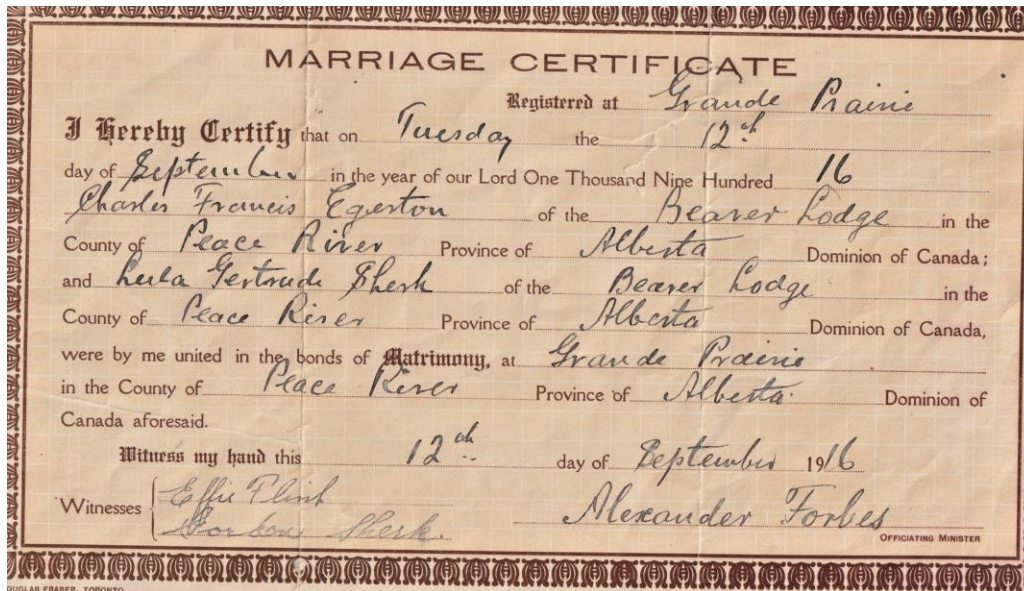 MARRIAGE CERTIFICATE
Registered at Grande Prairie
I Hereby Certify that on Tuesday the 12th
day of September in the year of our Lord One Thousand Nine Hundred 16
Charles Francis Egerton of the Beaver Lodge in the
County of Peace River Province of Alberta Dominion of Canada;
and Lula Gertrude Sherk of the Beaver Lodge in the
County of Peace River Province of Alberta Dominion of Canada,
were by me united in the bonds of Matrimony, at Grande Prairie
in the County of Peace River Province of Alberta Dominion of
Canada aforesaid.
Witness my hand this 12th day of September 1916
Witnesses Effie Flint
Sherk.
Alexander Forbes
OFFICIATING MINISTER
DOUGLAS FRASER, TORONTO